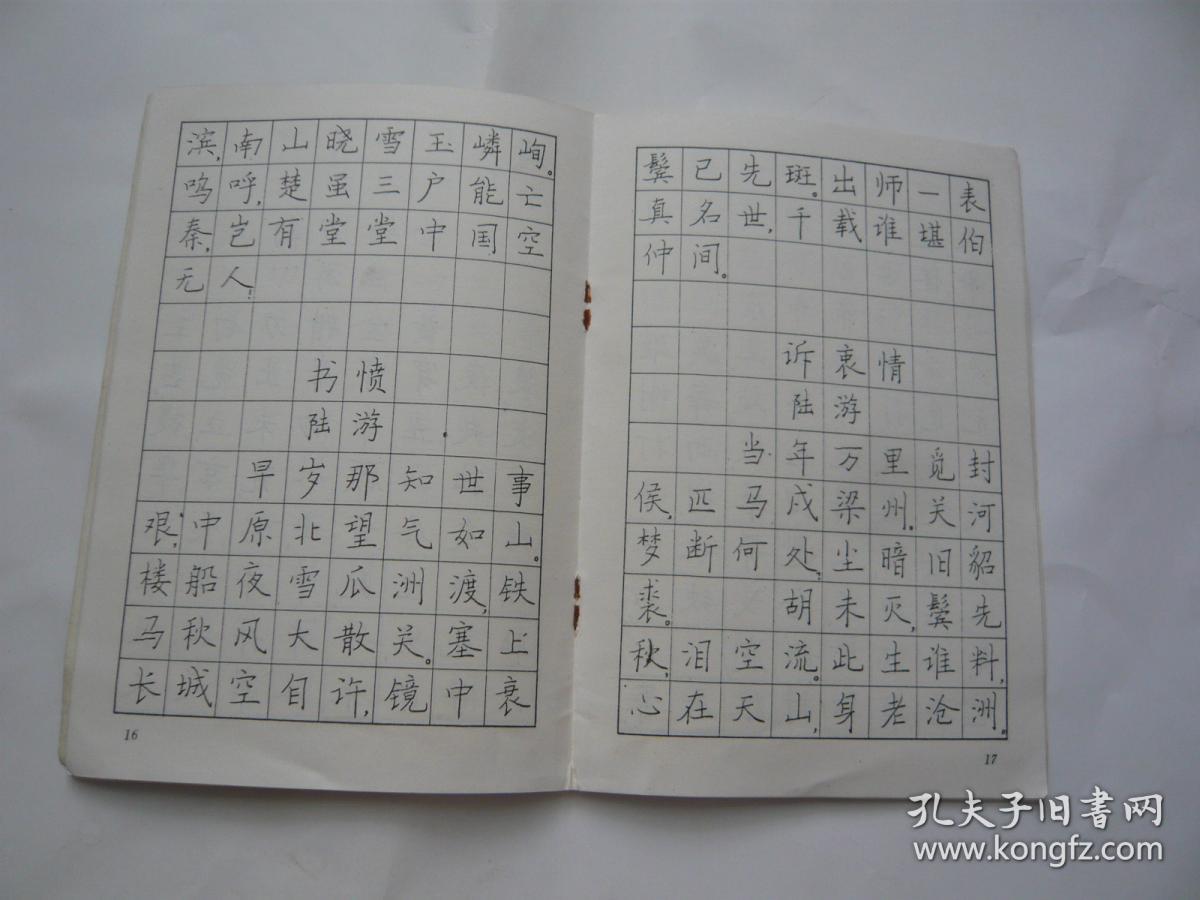 滨,南山晓雪玉嶙峋。
呜呼,楚虽三户能亡
秦,岂有堂堂中国空
无人!
书愤
陆游
早岁那知世事
艰,中原北望气如山。
楼船夜雪瓜洲渡,铁
马秋风大散关。塞上
长城空自许,镜中衰
16
鬓已先斑。出师一表
真名世,千载谁堪伯
仲间。
诉衷情
陆游
当年万里觅封
侯,匹马戍梁州。关河
梦断何处,尘暗旧貂
裘。 胡未灭,鬓先
秋,泪空流。此生谁料,
心在天山,身老沧洲。
17
孔夫子旧书网
www.kongfz.com